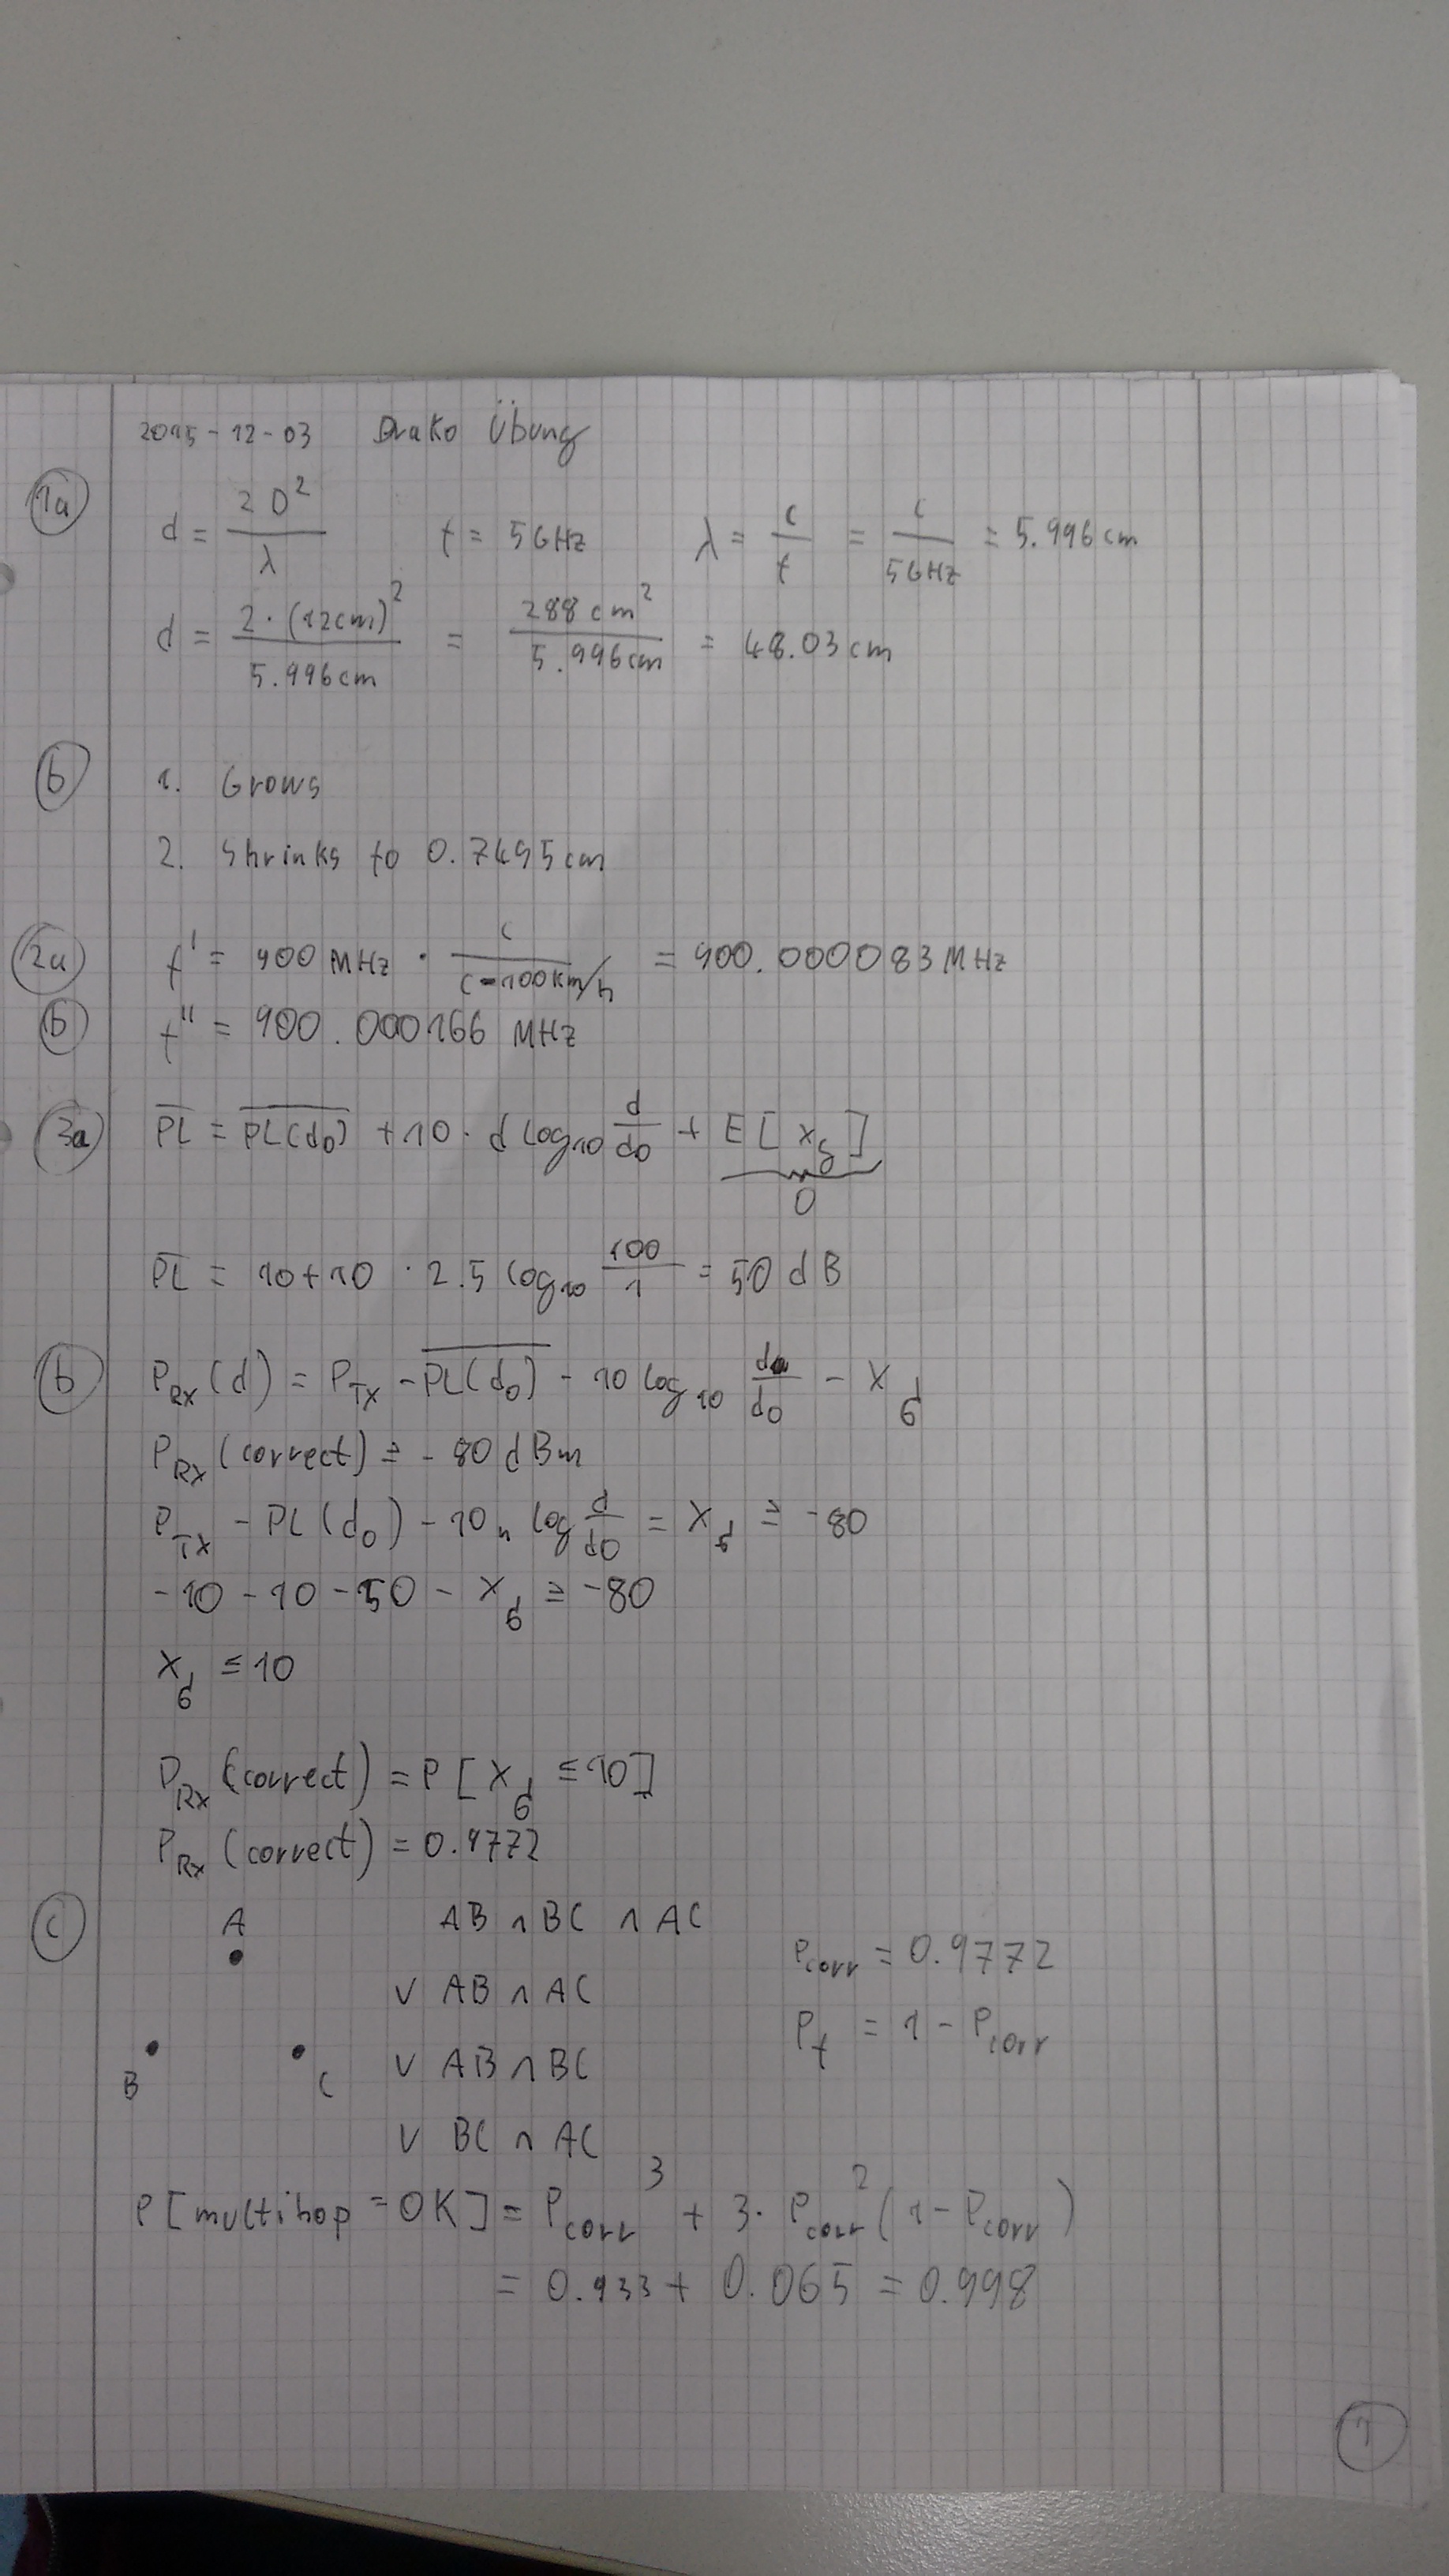 2015-12-03 Drako Übung
1a d = 2D² / λ f = 5GHz λ = c/f = c / 5GHz = 5.996cm
d = 2·(12cm)² / 5.996cm = 288cm² / 5.996cm = 48.03cm
b 1. Grows
2. Shrinks to 0.7495cm
2a f' = 900 MHz · c / (c-100km/h) = 900.000083MHz
b f'' = 900.000166 MHz
3a P̅L̅ = P̅L̅(d₀) + 10·d log₁₀ d/d₀ + E[Xδ]
0
P̅L̅ = 10+10·2.5 log₁₀ 100/1 = 50 dB
b P_RX(d) = P_TX - P̅L̅(d₀) - 10 log₁₀ d/d₀ - X_σ
P_RX(correct) ≥ -80 dBm
P_TX - PL(d₀) - 10n log d/d₀ = X_σ ≥ -80
-10 -10 -50 - X_σ ≥ -80
X_σ ≤ 10
P_RX(correct) = P[X_σ ≤ 10]
P_RX(correct) = 0.9772
c A AB ∧ BC ∧ AC
P_corr = 0.9772
∨ AB ∧ AC
P_f = 1 - P_corr
B C ∨ AB ∧ BC
∨ BC ∧ AC
P[multihop = OK] = P_corr³ + 3·P_corr²(1-P_corr)
= 0.933 + 0.065 = 0.998
1